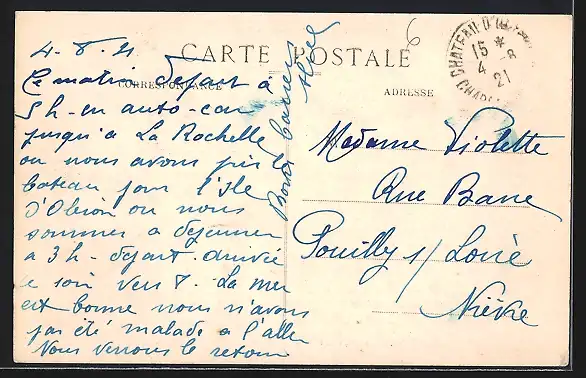 4-8-21
CARTE POSTALE
CORRESPONDANCE
ADRESSE
6
CHATEAU D'O
15 *
4 -8
21
Ce matin départ à
5h- en auto-car
jusqu'à La Rochelle
ou nous avons pris le
bateau pour l'Ile
d'Oléron ou nous
sommes a dejeuner
a 3h- départ arrivée
le soir vers 8. La mer
est bonne nous n'avons
pas été malade a l'aller
Nous verrons le retour
Bons baisers
Madame Violette
Rue Bane
Pouilly s/ Loire
Nièvre